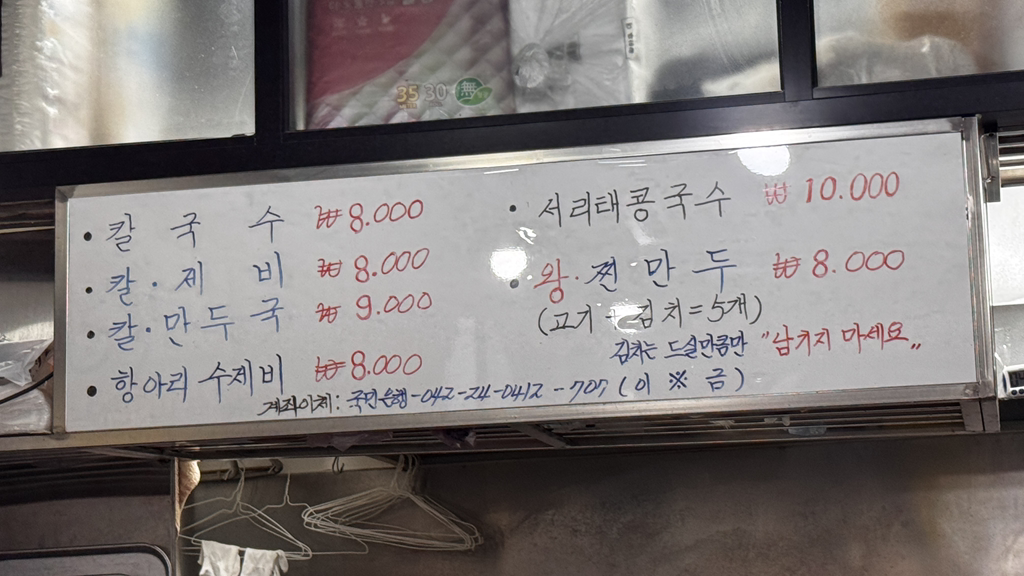 35 30 無
• 칼 국 수 ₩ 8.000
• 칼 · 제 비 ₩ 8.000
• 칼 · 만 두 국 ₩ 9.000
• 항아리 수제비 ₩ 8.000
• 서리태콩국수 ₩ 10.000
• 왕 · 찐 만 두 ₩ 8.000
(고기 + 김치 = 5개)
김치는 드실만큼만 "남기지 마세요„
계좌이체 : 국민은행 - 042-24-0412 - 707 ( 이 ※ 금 )